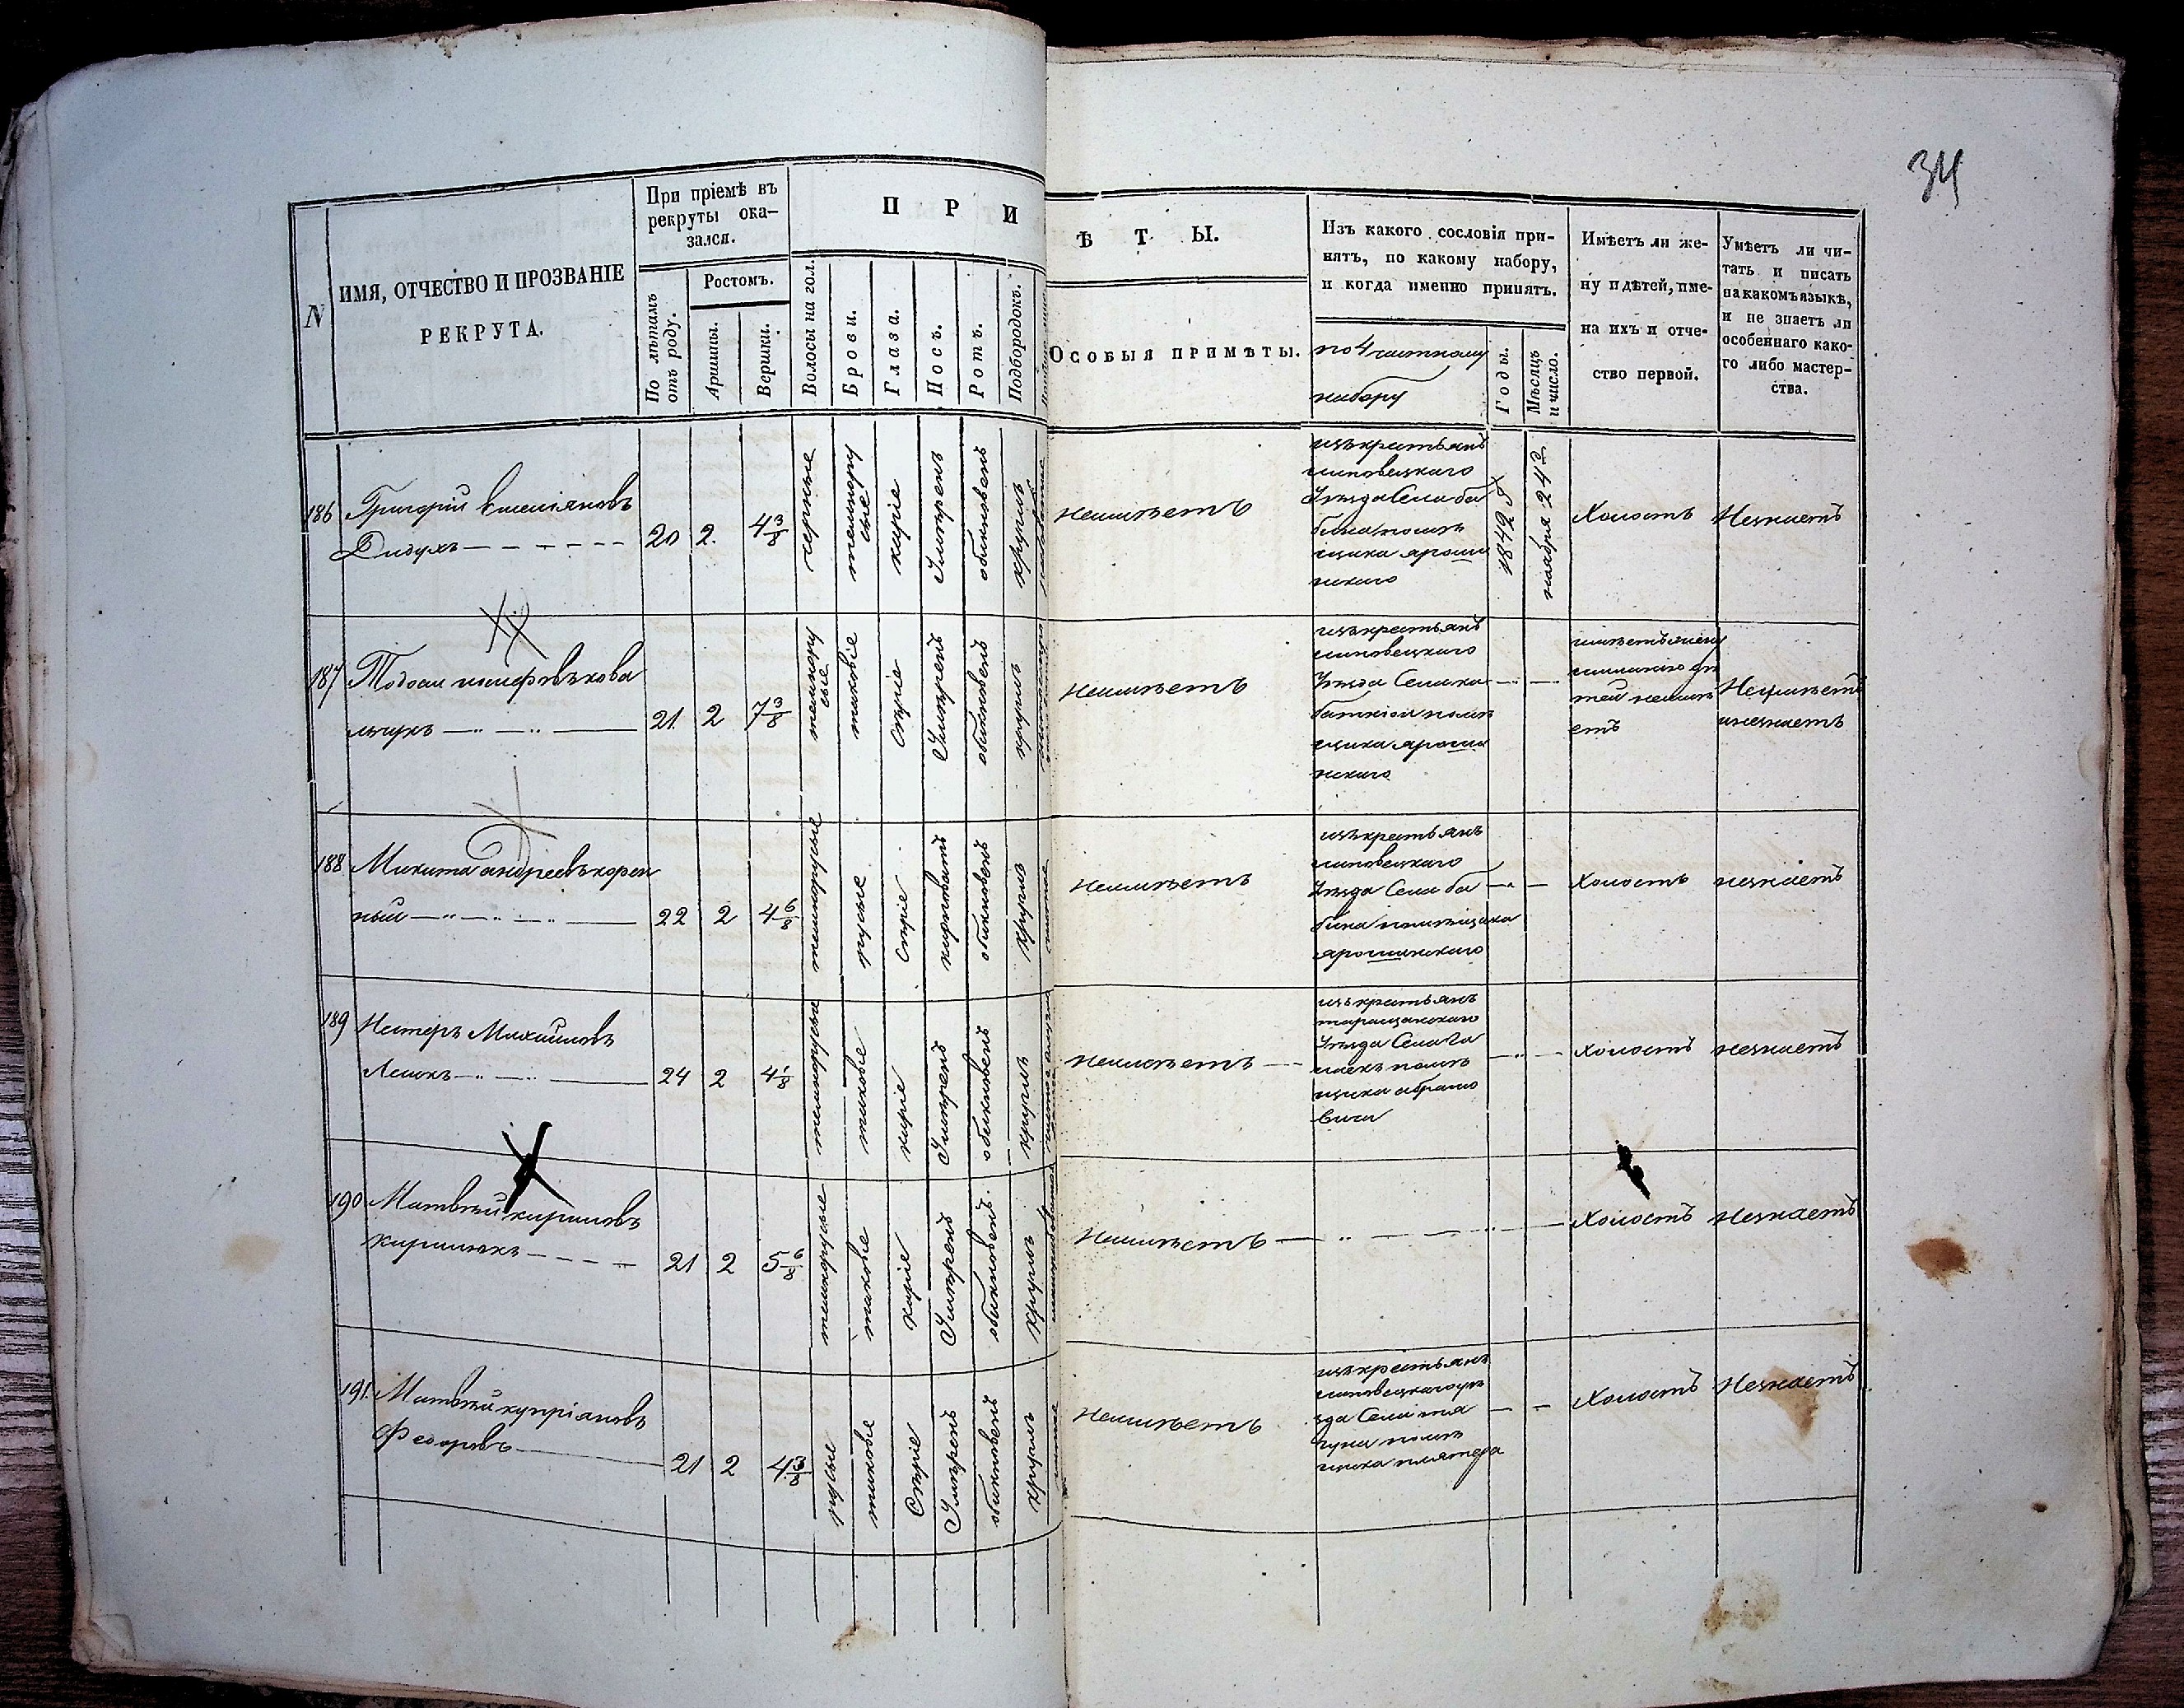 34
N
ИМЯ, ОТЧЕСТВО И ПРОЗВАНІЕ
РЕКРУТА.
При пріемѣ въ
рекруты ока-
зался.
По лѣтамъ
отъ роду.
Ростомъ.
Аршины.
Вершки.
П Р И
Волосы на гол.
Брови.
Глаза.
Носъ.
Ротъ.
Подбородокъ.
Ѣ Т Ы.
Особыя примѣты.
Изъ какого сословія при-
нятъ, по какому набору,
и когда именно принятъ.
по 4 частному
набору
Годы.
Мѣсяцъ
и число.
Имѣетъ ли же-
ну и дѣтей, име-
на ихъ и отче-
ство первой.
Умѣетъ ли чи-
тать и писать
на какомъ языкѣ,
и не знаетъ ли
особеннаго како-
го либо мастер-
ства.
186
Григорій Емеліяновъ
Дидухъ
20
2.
4 3/8
черные
темнору
сые
каріе
Умѣренъ
обыкновенъ
круглъ
неимѣетъ
изъ крестьянъ
липовецкаго
Уѣзда Села ба
бина помѣ
щика яроши
нскаго
1842
ноября 24
Холостъ
Незнаетъ
187
21
2
7 3/8
темнору
сые
таковіе
Сѣріе
Умѣренъ
обыкновенъ
круглъ
неимѣетъ
изъ крестьянъ
липовецкаго
Уѣзда Села ка
помѣ
щика яроши
нскаго
имѣетъ жену
дѣ
тей неимѣ
етъ
Неумѣетъ
инезнаетъ
188
Микита андреевъ корен
ный
22
2
4 6/8
темнорусые
русые
Сѣріе
курноватъ
обыкновенъ
круглъ
неимѣетъ
изъ крестьянъ
липовецкаго
Уѣзда Села ба
бина помѣщика
ярошинскаго
Холостъ
незнаетъ
189
Нестеръ Михайловъ
24
2
4 1/8
темнорусые
таковые
каріе
Умѣренъ
обыкновенъ
круглъ
неимѣетъ
изъ крестьянъ
таращанского
Уѣзда Села Га
помѣ
щика абрамо
вича
холостъ
незнаетъ
190
Матвѣй кириловъ
кирилюкъ
21
2
5 6/8
темнорусые
таковіе
каріе
Умѣренъ
обыкновенъ.
круглъ
Неимѣетъ
Холостъ
Незнаетъ
191.
Матвѣй купріановъ
Федоровъ
21
2
4 3/8
русые
таковые
Сѣріе
Умѣренъ
обыкновенъ
круглъ
неимѣетъ
изъ крестьянъ
липовецкаго уѣ
зда Села тя
гуна помѣ
щика плятера
Холостъ
Незнаетъ